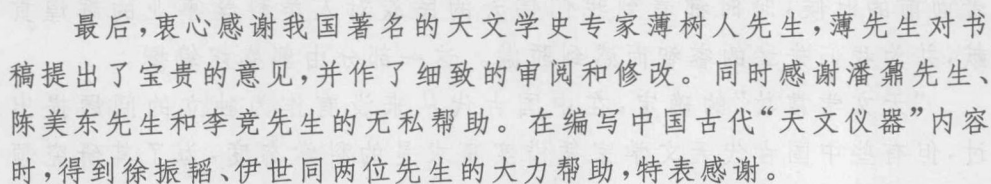 最后,衷心感谢我国著名的天文学史专家薄树人先生,薄先生对书
稿提出了宝贵的意见,并作了细致的审阅和修改。同时感谢潘鼐先生、
陈美东先生和李竞先生的无私帮助。在编写中国古代“天文仪器”内容
时,得到徐振韬、伊世同两位先生的大力帮助,特表感谢。